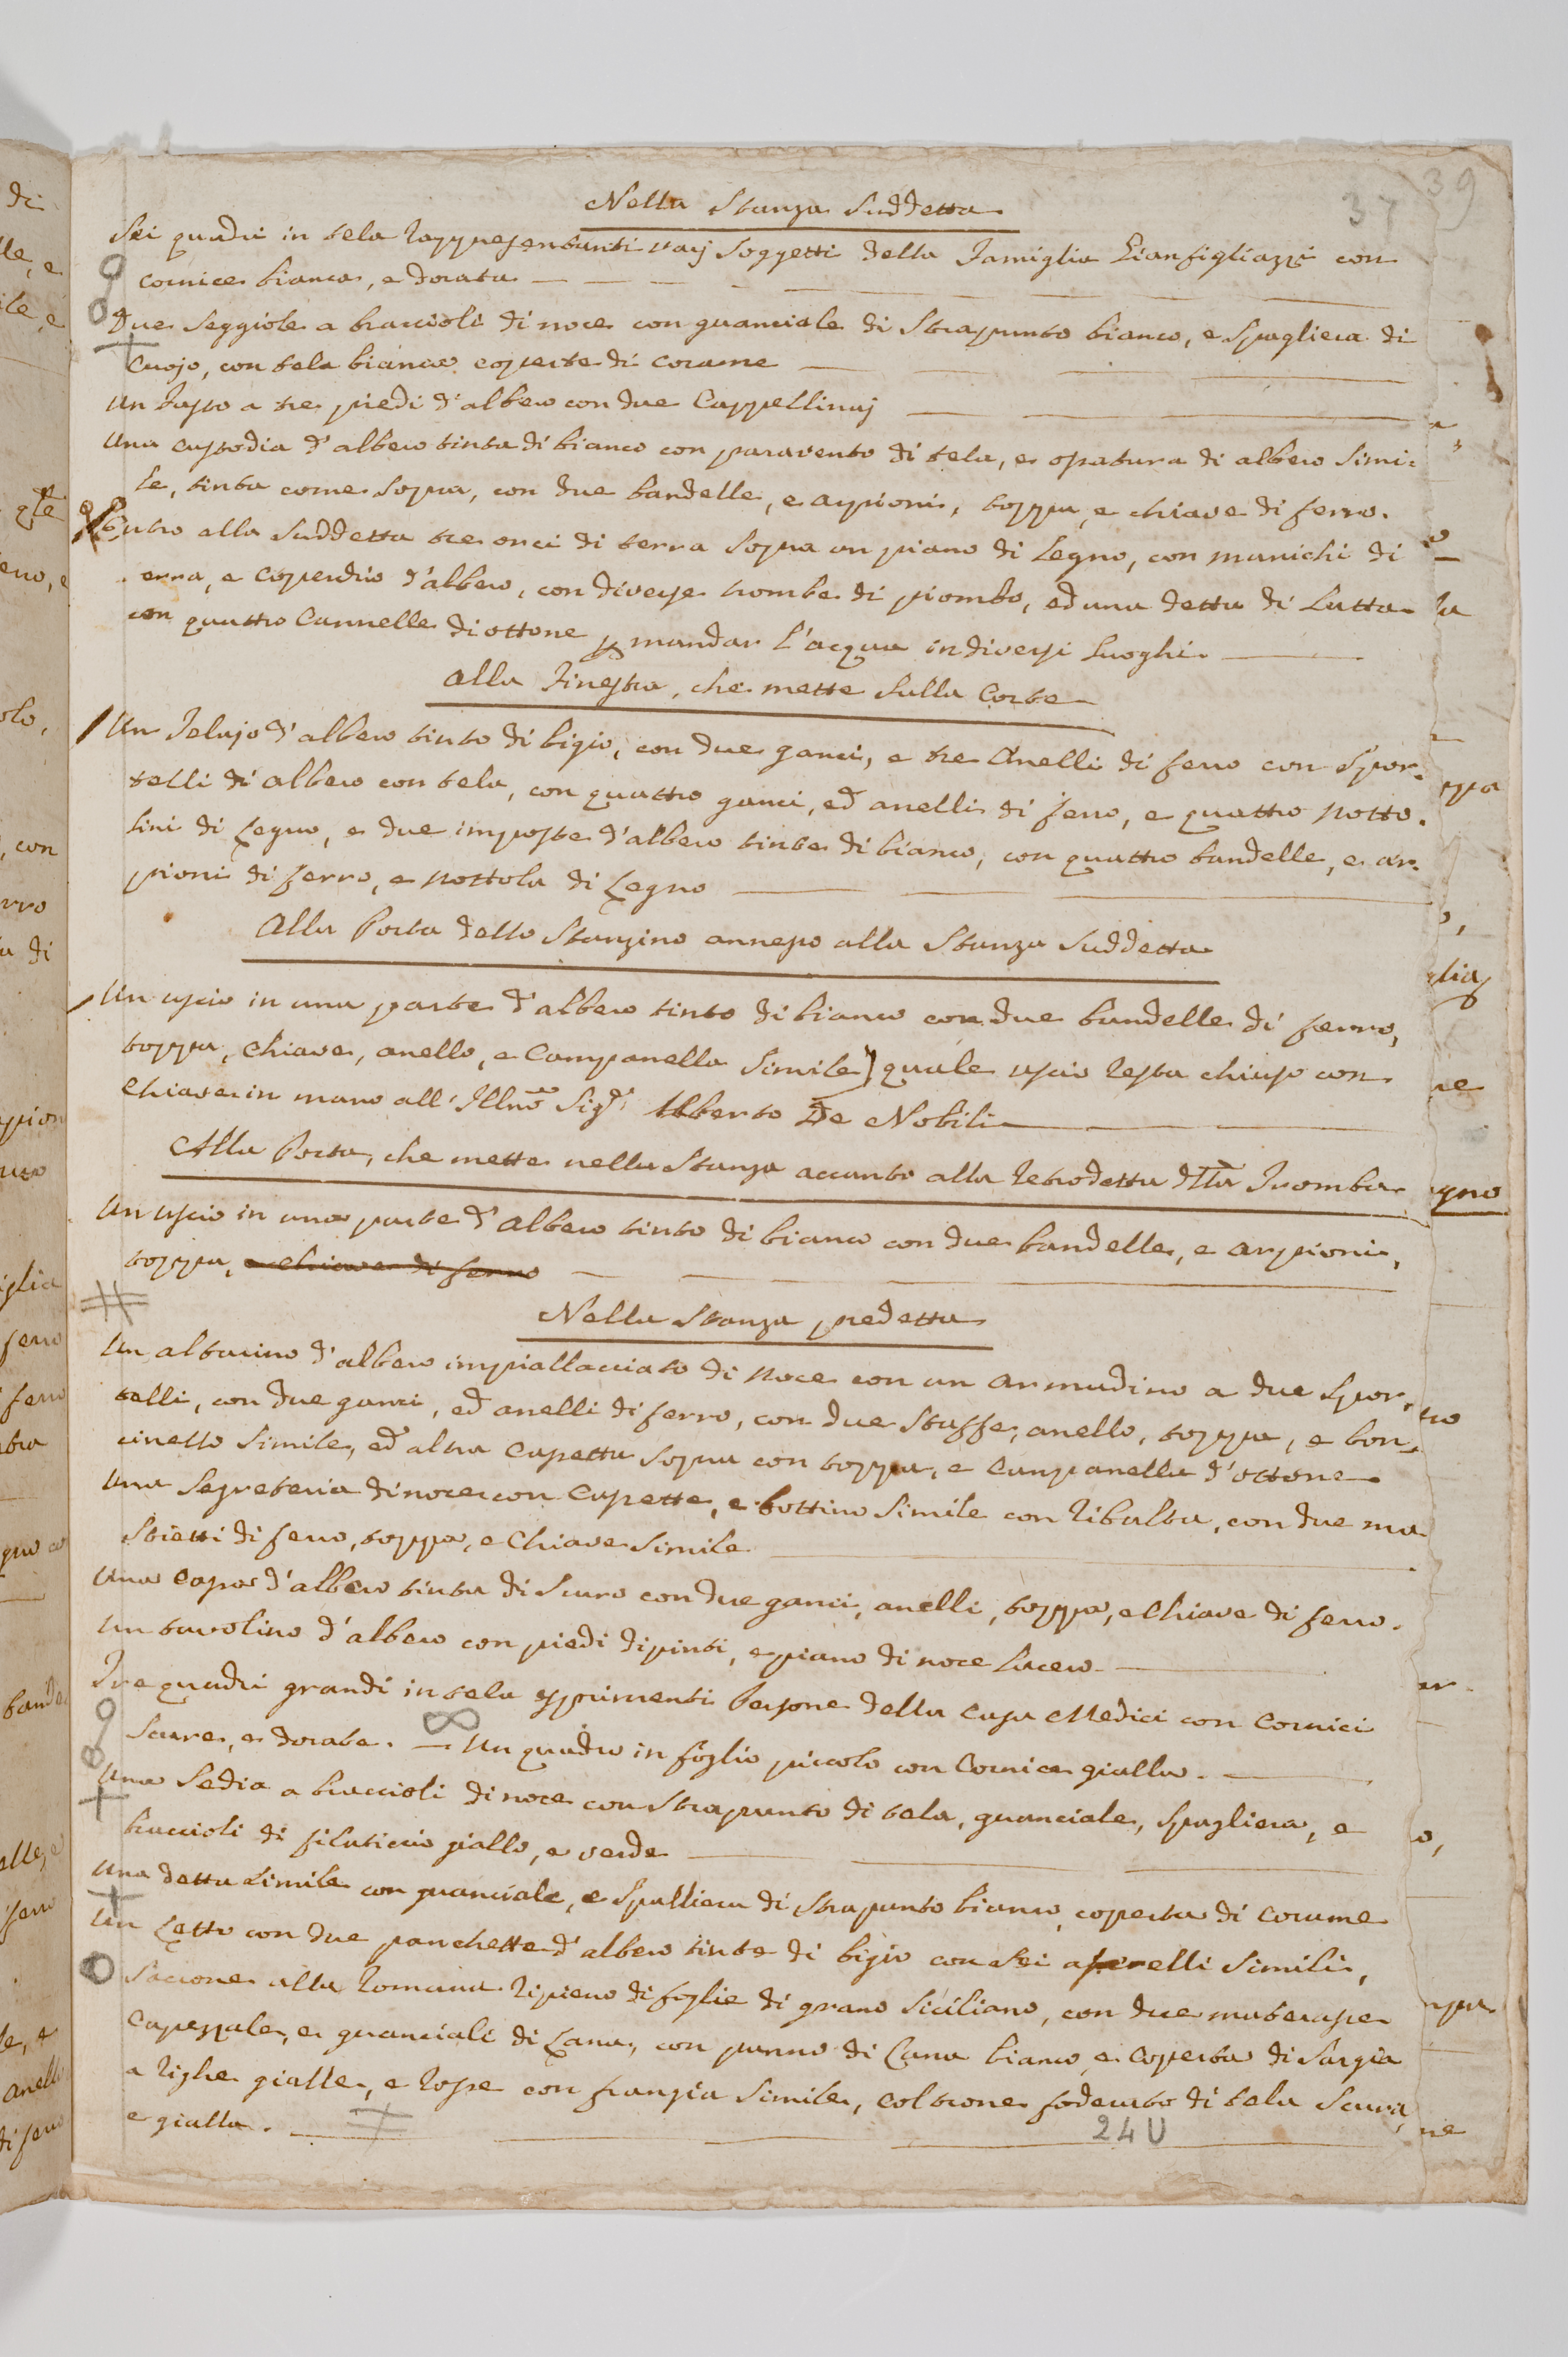 39
37
Nella Stanza Suddetta
Sei quadri in tela rappresentanti varj Soggetti della Famiglia Gianfigliazzi con
cornice bianca, e dorata
Due Seggiole a braccioli di noce con guanciale di Strapunto bianco, e Spagliera di
Cuojo, con tela bianca coperte di corame
Un Fusto a tre piedi d'albero con due Cappellinaj
Una custodia d'albero tinta di bianco con paravento di tela, e opatura di albero Simi:
le, tinta come Sopra, con due bandelle, e arpioni, toppa, e chiave di ferro.
Entro alla Suddetta tre orci di terra Sopra un piano di Legno, con manichi di
erra, e coperchio d'albero, con diverse trombe di piombo, ed una detta di Latta
con quattro Cannelle di ottone p mandar l'acqua in diversi Luoghi.
Alla Finestra, che mette Sulla Corte
Un Telajo d'albero tinto di bigio, con due ganci, e tre Anelli di ferro con Spor:
telli di albero con tela, con quattro ganci, ed anelli di ferro, e quattro Notto:
lini di Legno, e due imposte d'albero tinte di bianco, con quattro bandelle, e ar:
pioni di ferro, e Nottola di Legno
Alla Porta dello Stanzino annesso alla Stanza Suddetta
Un uscio in una parte d'albero tinto di bianco con due bandelle di ferro,
toppa, chiave, anello, e Campanella Simile) quale uscio resta chiuso con
Chiave in mano all'Illmo Sigr Alberto De Nobili
Alla Porta, che mette nella Stanza accanto alla retrodetta dtta Tromba
Un uscio in una parte d'albero tinto di bianco con due bandelle, e arpioni,
toppa, e chiave di ferro
Nella Stanza predetta
Un altarino d'albero impiallacciato di Noce con un armadino a due Spor:
telli, con due ganci, ed anelli di ferro, con due Staffe, anello, toppa, e bon:
cinello Simile, ed altra Casetta Sopra con toppa, e Campanella d'ottone
Una Segreteria di noce con Casette, e bottino Simile con ribalta, con due ma:
Stietti di ferro, toppa, e Chiave Simile
Una Cassa d'albero tinta di Scuro con due ganci, anelli, toppa, e Chiave di ferro.
Un tavolino d'albero con piedi dipinti, e piano di noce Liscio
Tre quadri grandi in tela esprimenti Persone della Casa Medici con Cornici
Scure, e dorate. — Un quadro in foglio piccolo con Cornice gialla.
Una Sedia a braccioli di noce con Strapunto di tela, guanciale, Spagliera, e
braccioli di filaticcio giallo, e verde
Una detta Simile con guanciale, e Spalliera di Strapunto bianco, coperta di Corame
Un Letto con due panchette d'albero tinte di bigio con Sei aperelli Simili,
Saccone alla Romana ripieno di foglie di grano Siciliano, con due materasse
Capezzale, e guanciali di Lana, con panno di Lana bianco, e Coperta di Sargia
a righe gialle, e rosse con frangia Simile, Coltrone foderato di tela Scura,
e gialla.
24 U